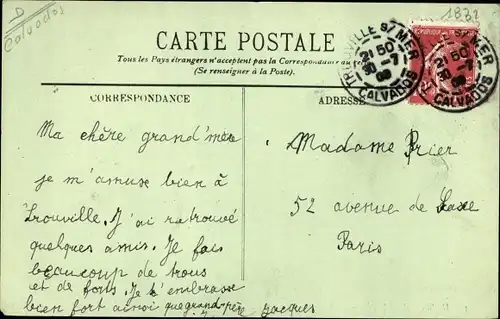 D
Calvados
1832
CARTE POSTALE
Tous les Pays étrangers n'acceptent pas la Correspondance au
(Se renseigner à la Poste).
TROUVILLE S/ MER
21 50
30 -7
08
CALVADOS
S/ MER
21 50
30 -7
08
CALVADOS
CORRESPONDANCE
Ma chère grand'mère
je m'amuse bien à
Trouville. J'ai retrouvé
quelques amis. Je fais
beaucoup de trous
et de forts. Je t'embrasse
bien fort ainsi que grand-père Jacques
ADRESSE
Madame Prier
52 avenue de Saxe
Paris